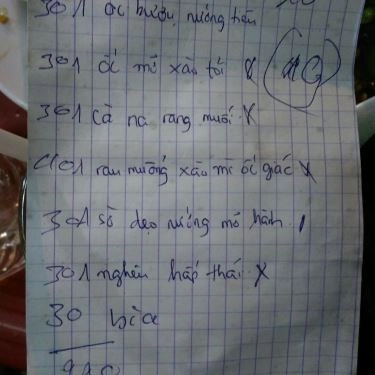 30 1 ốc bươu nướng tiêu
30 1 ốc mỡ xào tỏi x 40
30 1 cà na rang muối x
40 1 rau muống xào mì ốc giác x
30 1 sò dẹo nướng mỡ hành 1
30 1 nghêu hấp thái x
30 bia